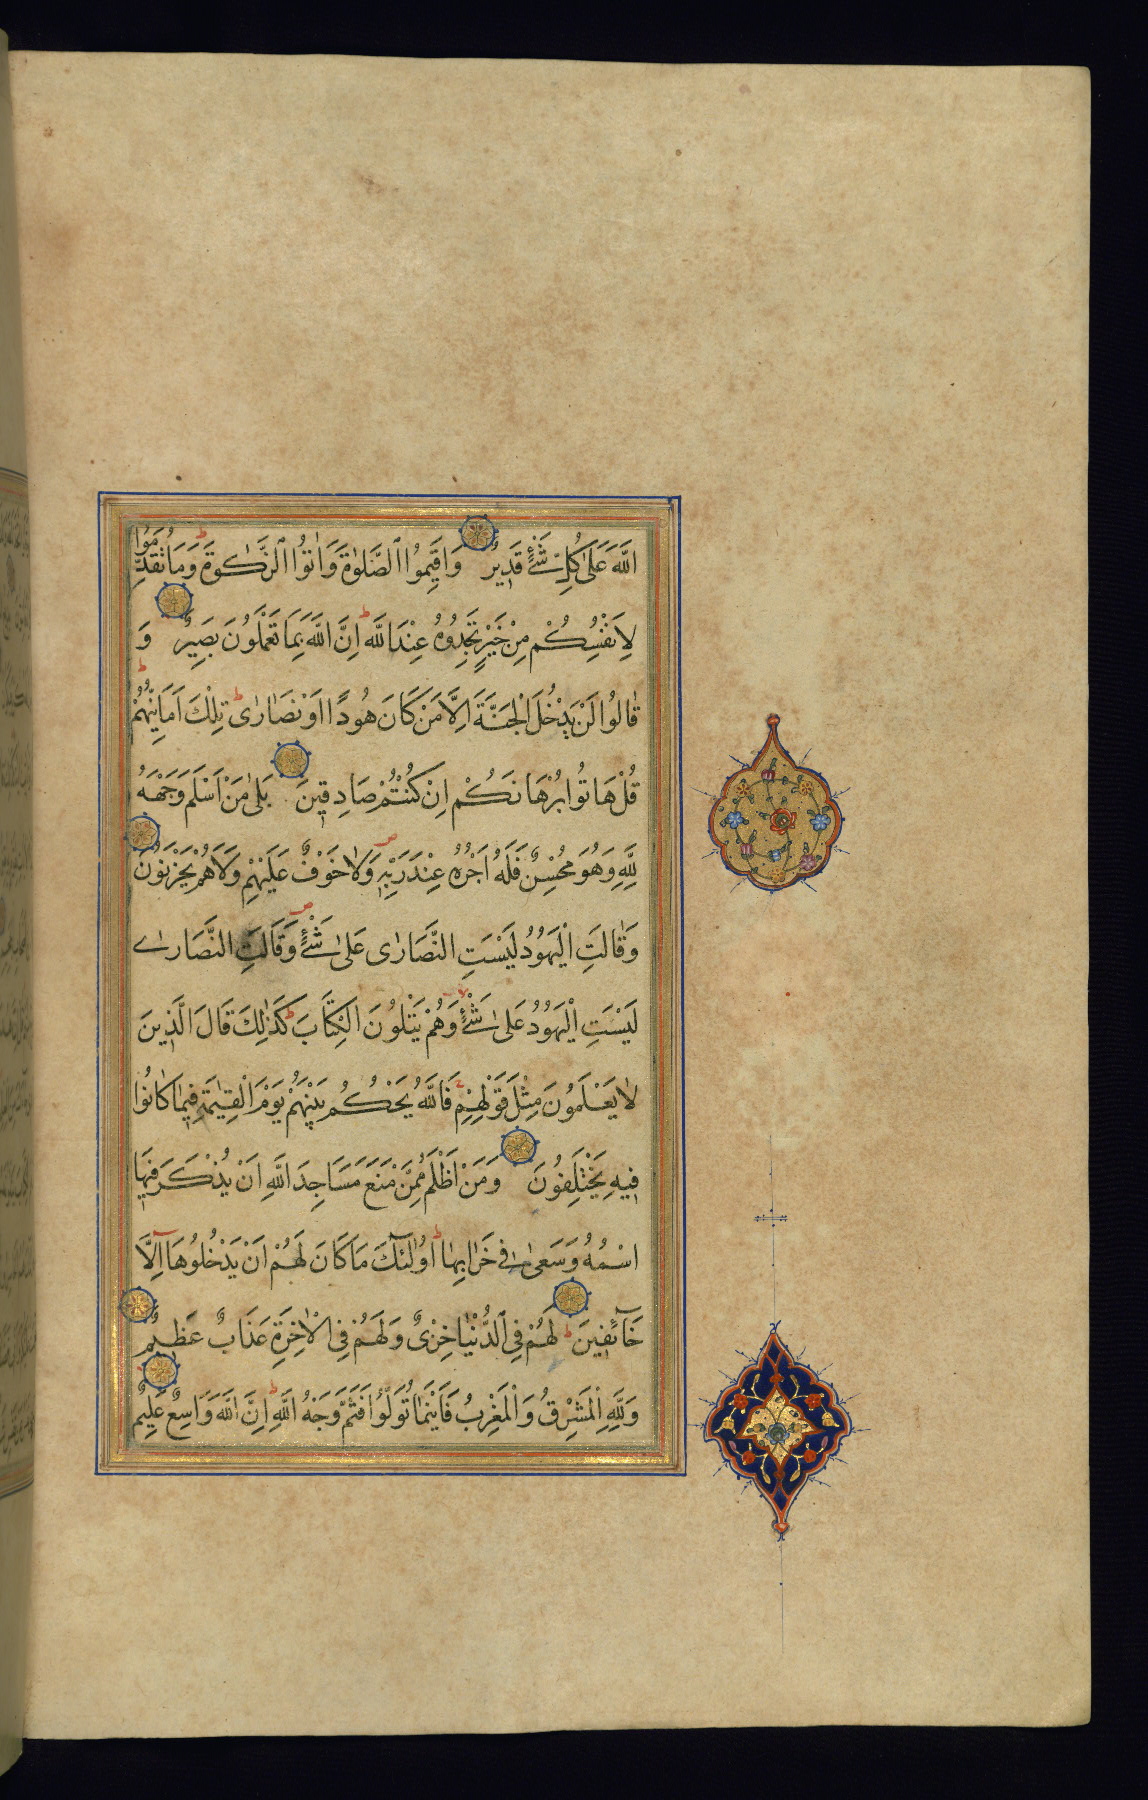 اللَّهَ عَلَىٰ كُلِّ شَيْءٍ قَدِيرٌ وَاَقِيمُوا الصَّلٰوةَ وَاٰتُوا الزَّكٰوةَ وَمَا تُقَدِّمُوا
لِاَنْفُسِكُمْ مِنْ خَيْرٍ تَجِدُوهُ عِنْدَ اللَّهِ اِنَّ اللَّهَ بِمَا تَعْمَلُونَ بَصِيرٌ وَ
قَالُوا لَنْ يَدْخُلَ الْجَنَّةَ اِلَّا مَنْ كَانَ هُودًا اَوْ نَصَارٰى تِلْكَ اَمَانِيُّهُمْ
قُلْ هَاتُوا بُرْهَانَكُمْ اِنْ كُنْتُمْ صَادِقِينَ بَلٰى مَنْ اَسْلَمَ وَجْهَهُ
لِلَّهِ وَهُوَ مُحْسِنٌ فَلَهُ اَجْرُهُ عِنْدَ رَبِّهِ وَلَا خَوْفٌ عَلَيْهِمْ وَلَا هُمْ يَحْزَنُونَ
وَقَالَتِ الْيَهُودُ لَيْسَتِ النَّصَارٰى عَلٰى شَيْءٍ وَقَالَتِ النَّصَارٰى
لَيْسَتِ الْيَهُودُ عَلٰى شَيْءٍ وَهُمْ يَتْلُونَ الْكِتَابَ كَذٰلِكَ قَالَ الَّذِينَ
لَا يَعْلَمُونَ مِثْلَ قَوْلِهِمْ فَاللَّهُ يَحْكُمُ بَيْنَهُمْ يَوْمَ الْقِيٰمَةِ فِيمَا كَانُوا
فِيهِ يَخْتَلِفُونَ وَمَنْ اَظْلَمُ مِمَّنْ مَنَعَ مَسَاجِدَ اللَّهِ اَنْ يُذْكَرَ فِيهَا
اسْمُهُ وَسَعٰى فِي خَرَابِهَا اُولٰئِكَ مَا كَانَ لَهُمْ اَنْ يَدْخُلُوهَا اِلَّا
خَآئِفِينَ لَهُمْ فِي الدُّنْيَا خِزْىٌ وَلَهُمْ فِي الْاٰخِرَةِ عَذَابٌ عَظِيمٌ
وَلِلَّهِ الْمَشْرِقُ وَالْمَغْرِبُ فَاَيْنَمَا تُوَلُّوا فَثَمَّ وَجْهُ اللَّهِ اِنَّ اللَّهَ وَاسِعٌ عَلِيمٌ